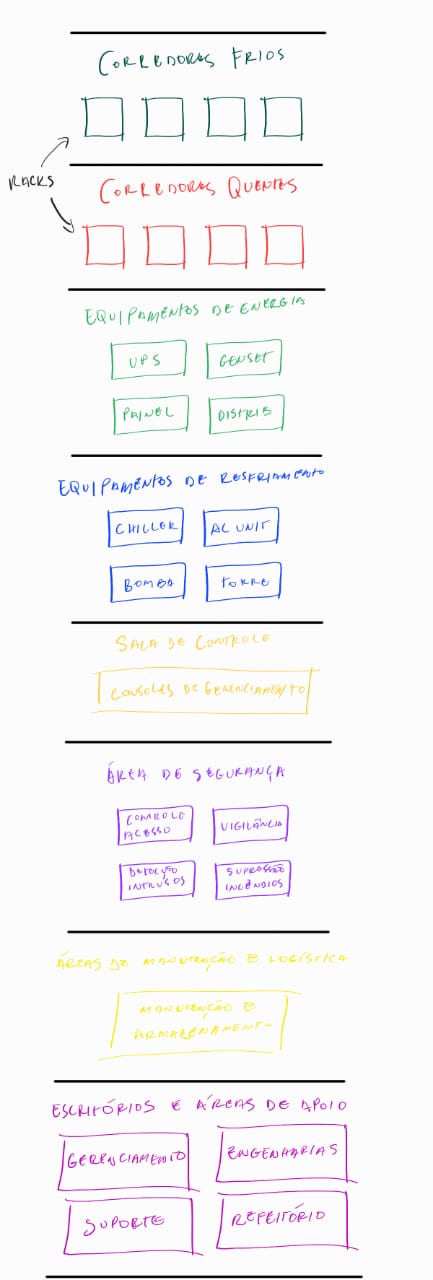 CORREDORES FRIOS
RACKS
CORREDORES QUENTES
EQUIPAMENTOS DE ENERGIA
UPS
GENSET
PAINEL
DISTRIB
EQUIPAMENTOS DE RESFRIAMENTO
CHILLER
AC UNIT
BOMBA
TORRE
SALA DE CONTROLE
CONSOLES DE GERENCIAMENTO
ÁREA DE SEGURANÇA
CONTROLE
ACESSO
VIGILÂNCIA
DETECÇÃO
INTRUSOS
SUPRESSÃO
INCÊNDIOS
ÁREAS DE MANUTENÇÃO E LOGÍSTICA
MANUTENÇÃO E
ARMAZENAMENTO
ESCRITÓRIOS E ÁREAS DE APOIO
GERENCIAMENTO
ENGENHARIAS
SUPORTE
REFEITÓRIO